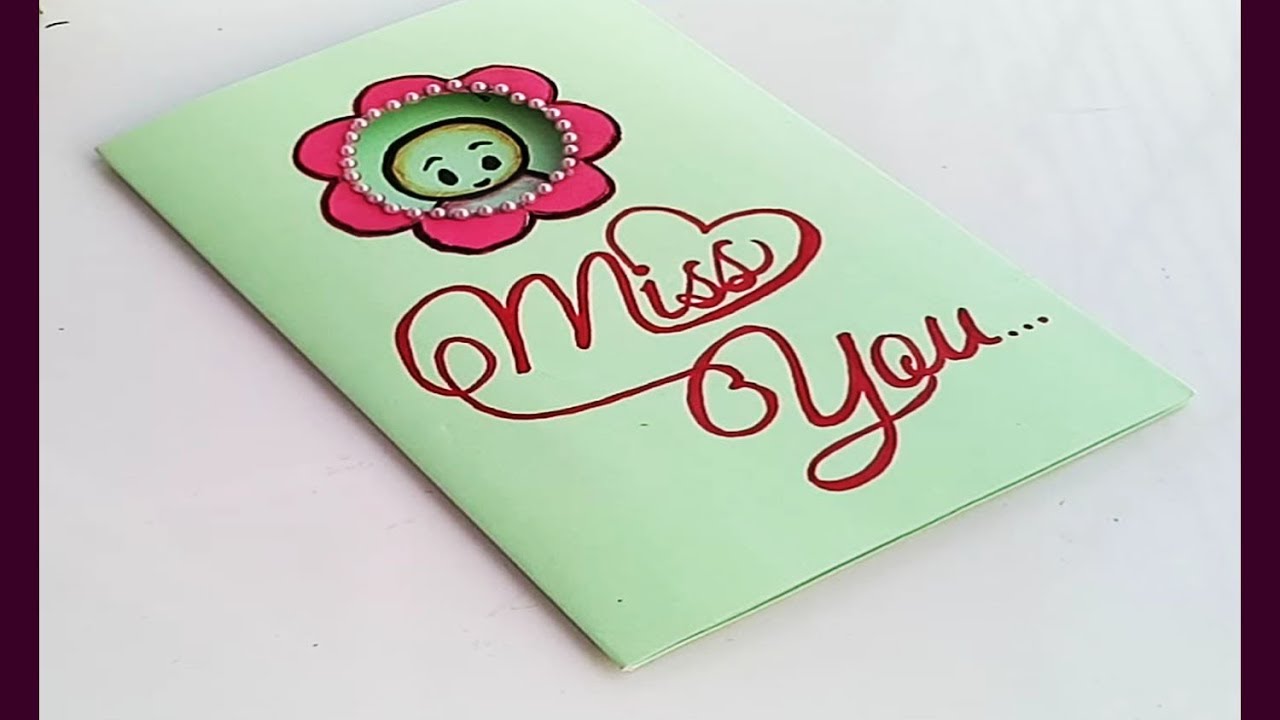 Miss
You...